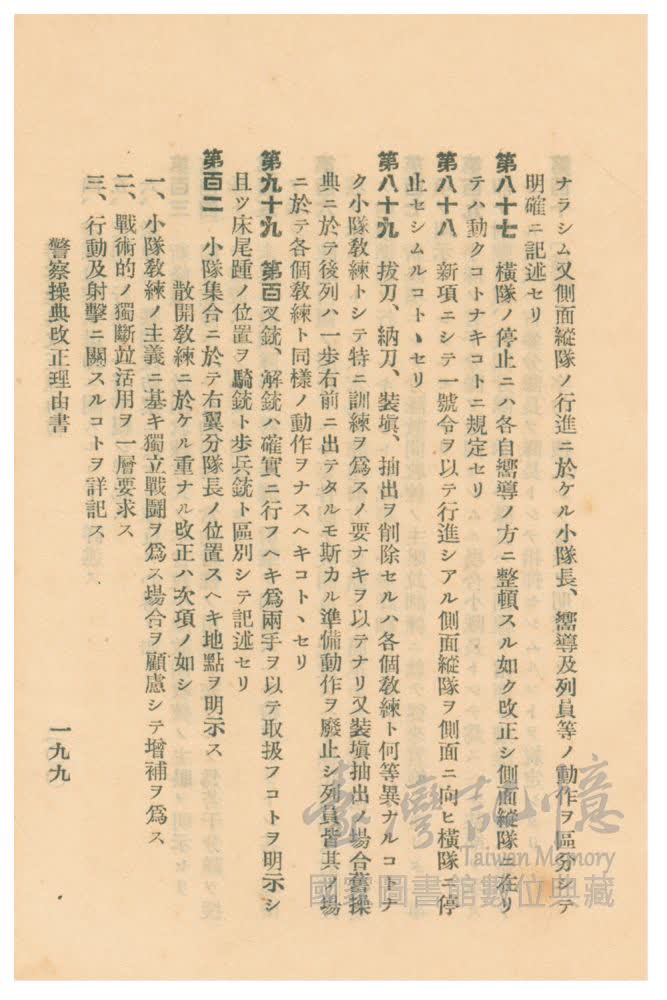 ナラシム又側面縱隊ノ行進ニ於ケル小隊長、嚮導及列員等ノ動作ヲ區分シテ
明確ニ記述セリ
第八十七　橫隊ノ停止ニハ各自嚮導ノ方ニ整頓スル如ク改正シ側面縱隊ニ在リ
テハ動クコトナキコトニ規定セリ
第八十八　新項ニシテ一號令ヲ以テ行進シアル側面縱隊ヲ側面ニ向ヒ橫隊ニ停
止セシムルコトヽセリ
第八十九　拔刀、納刀、裝塡、抽出ヲ削除セルハ各個敎練ト何等異ナルコトナ
ク小隊敎練トシテ特ニ訓練ヲ爲スノ要ナキヲ以テナリ又裝塡抽出ノ場合舊操
典ニ於テ後列ハ一步右前ニ出テタルモ斯カル準備動作ヲ廢止シ列員皆其ノ場
ニ於テ各個敎練ト同樣ノ動作ヲナスヘキコトヽセリ
第九十九　第百叉銃、解銃ハ確實ニ行フヘキ爲兩手ヲ以テ取扱フコトヲ明示シ
且ツ床尾踵ノ位置ヲ騎銃ト步兵銃ト區別シテ記述セリ
第百二　小隊集合ニ於テ右翼分隊長ノ位置スヘキ地點ヲ明示ス
散開敎練ニ於ケル重ナル改正ハ次項ノ如シ
一、小隊敎練ノ主義ニ基キ獨立戰鬪ヲ爲ス場合ヲ顧慮シテ增補ヲ爲ス
二、戰術的ノ獨斷竝活用ヲ一層要求ス
三、行動及射擊ニ關スルコトヲ詳記ス
警察操典改正理由書
一九九
臺灣記憶
Taiwan Memory
國家圖書館數位典藏